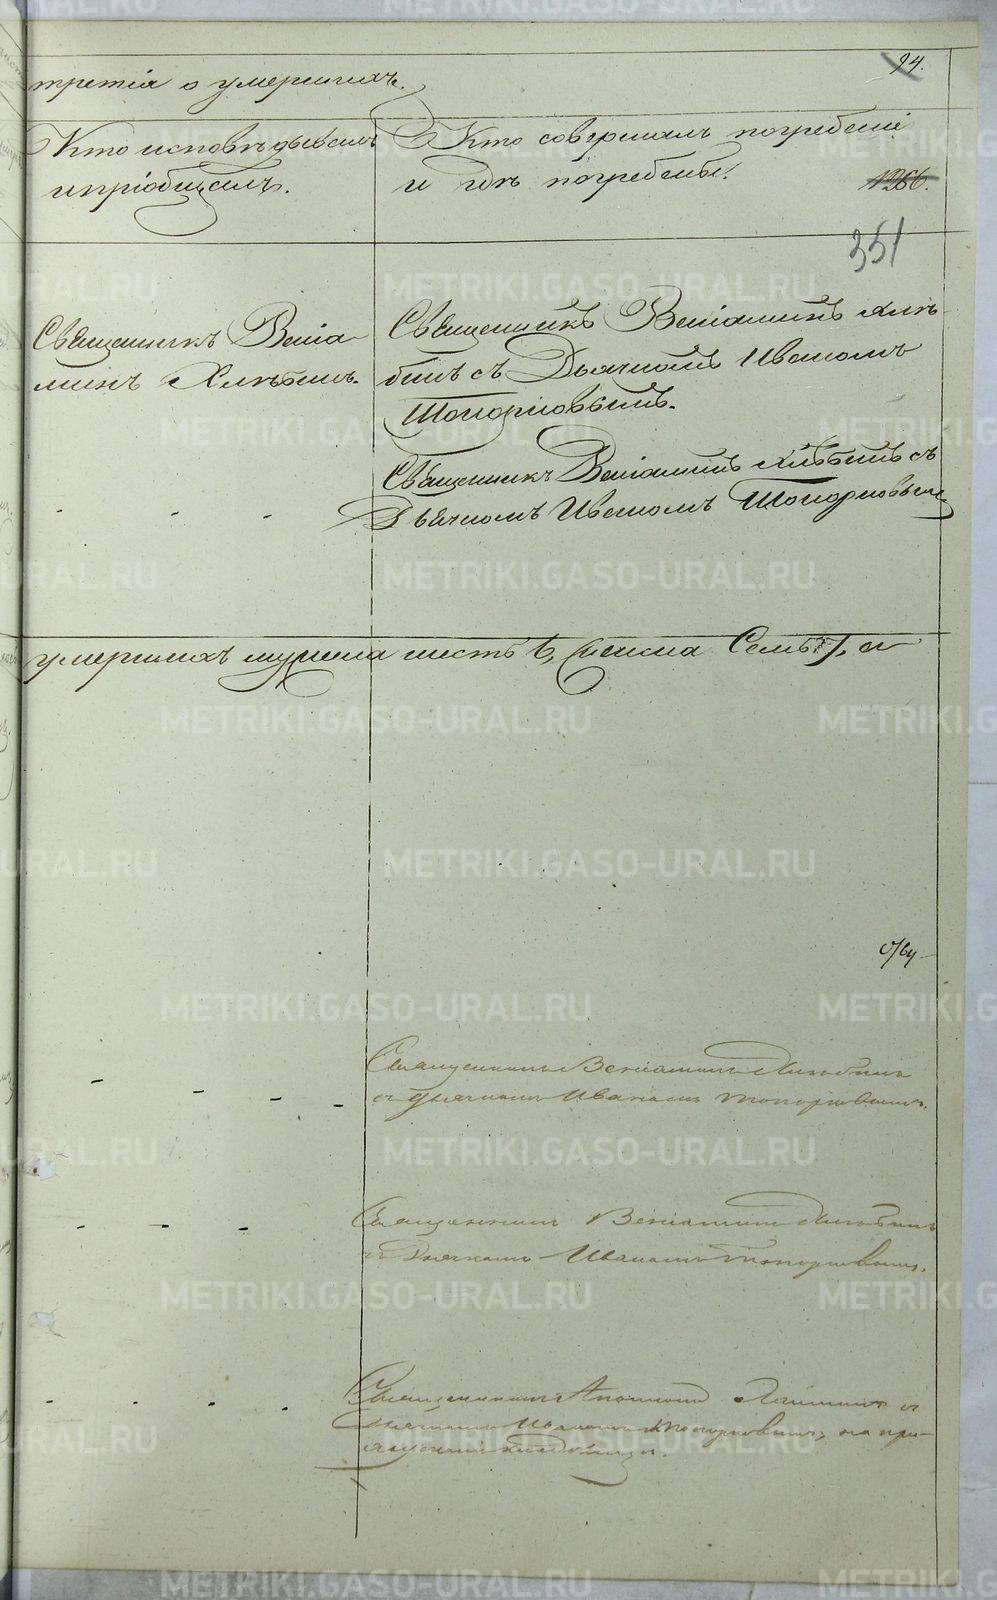 94.
третія о умершихъ.
Кто исповѣдывалъ
и пріобщалъ.
Кто совершалъ погребеніе
и гдѣ погребены.
1286.
351
Священникъ Веніа-
минъ Хлѣбинъ.
Священникъ Веніаминъ Хлѣ-
бинъ съ Дьячкомъ Иваномъ
Топорковымъ.
Священникъ Веніаминъ Хлѣбинъ съ
Дьячкомъ Иваномъ Топорковымъ
умершихъ мужеска шесть 6, женска Семь 7, а
Священникъ Веніаминъ Хлѣбинъ
съ дьячкомъ Иваномъ Топорковымъ.
Священникъ Веніаминъ Хлѣбинъ
съ Дьячкомъ Иваномъ Топорковымъ.
Священникъ с
Дьячкомъ Иваномъ Топорковымъ, на при-
кладбищѣ.
METRIKI.GASO-URAL.RU